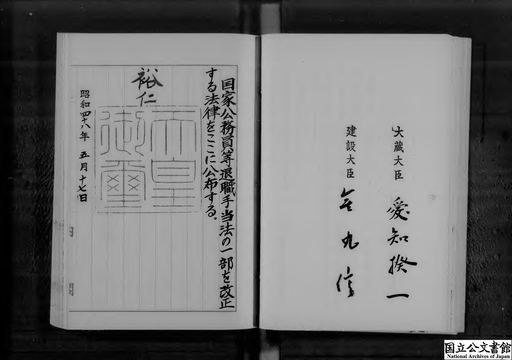 国家公務員等退職手当法の一部を改正
する法律をここに公布する。
裕仁
天皇
御璽
昭和四十八年 五月 十七日
大蔵大臣 愛知揆一
建設大臣 金丸信
国立公文書館
National Archives of Japan